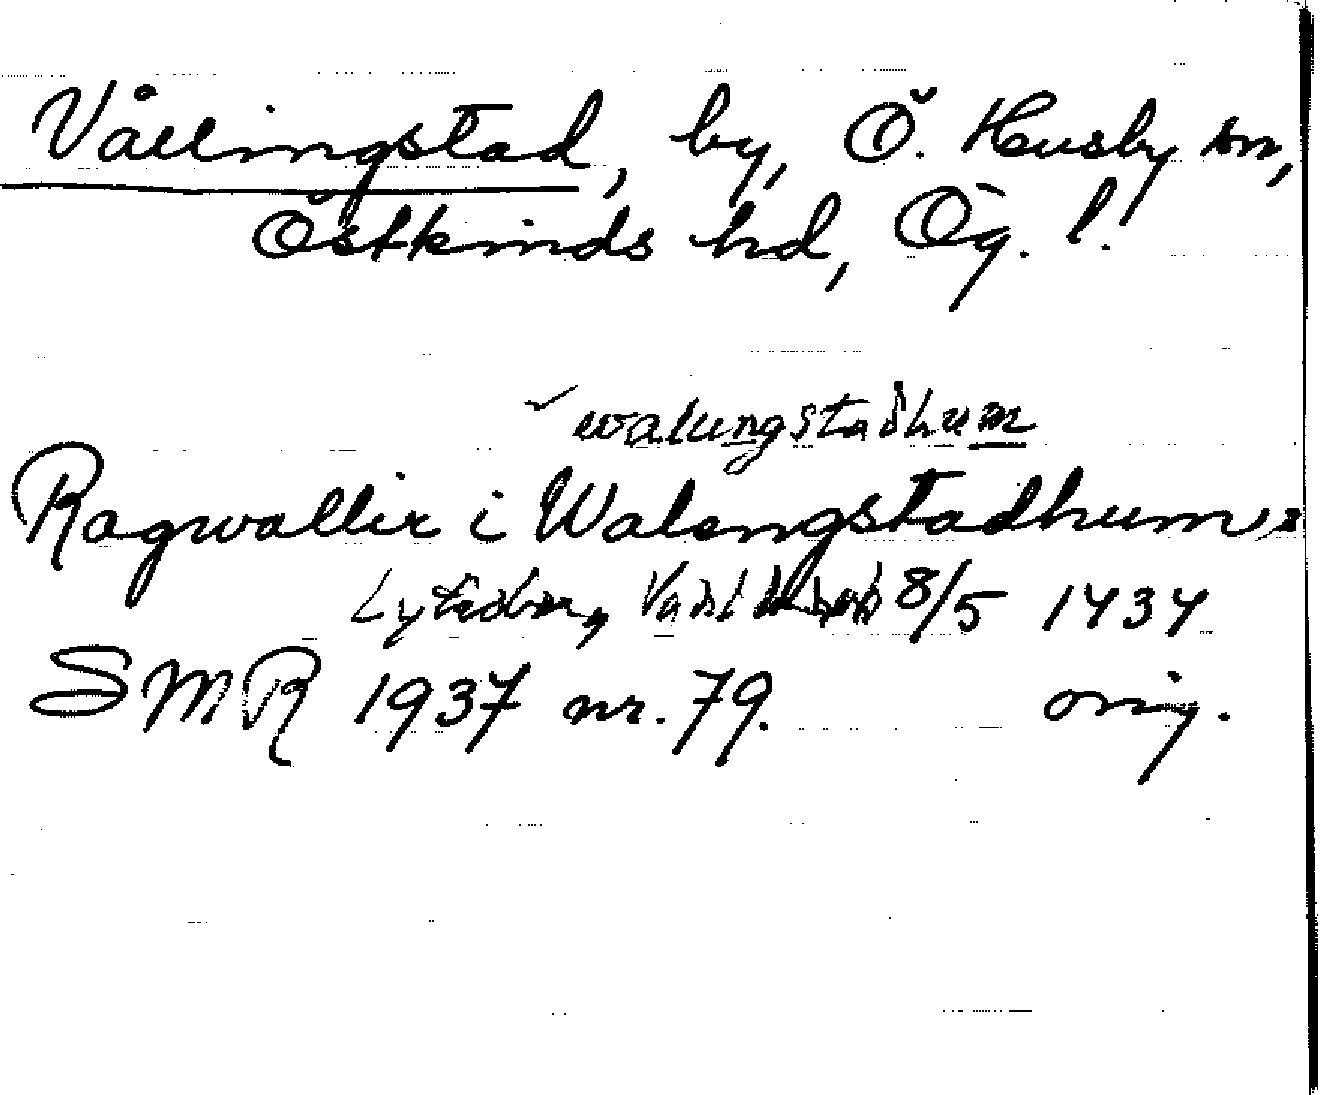 Vållingstad, by, Ö. Husby sn,
Östkinds hd, Ög. l.
walungstadhum
Ragwallir i Walengstadhum,
8/5 1434
SMR 1937 nr. 79. orig.